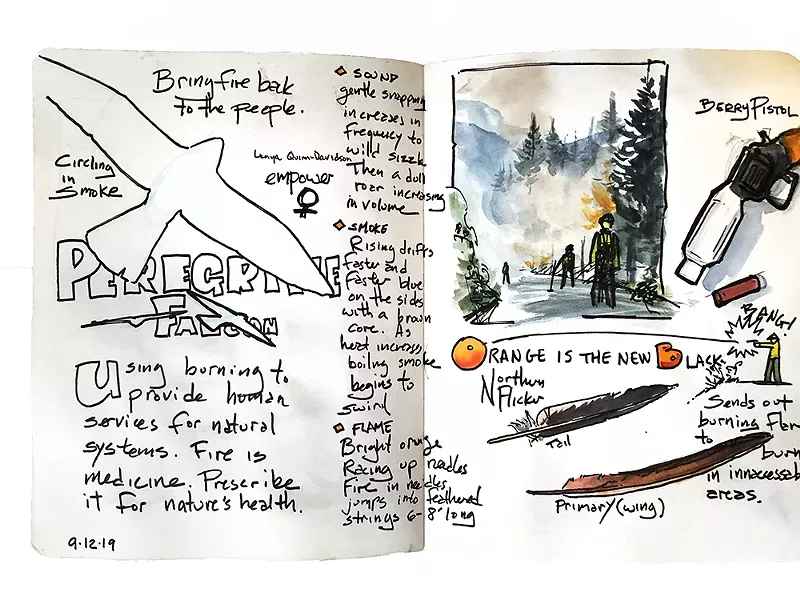 Bring fire back
to the people.
Circling
in
Smoke
Lenya Quinn-Davidson
empower
PEREGRINE
FALCON
Using burning to
provide human
services for natural
systems. Fire is
medicine. Prescribe
it for nature's health.
9.12.19
SOUND
gentle snapping
increases in
frequency to
wild sizzle
Then a dull
roar increasing
in volume
SMOKE
Rising drifts
faster and
faster blue
on the sides
with a brown
core. As
heat increases,
boiling smoke
begins to
swirl
FLAME
Bright orange
Racing up needles
Fire in needles
jumps into feathered
strings 6-8" long
BERRY PISTOL
BANG!
ORANGE IS THE NEW BLACK
Northern
Flicker
Tail
Primary (wing)
Sends out
burning flar
to burn
in innacessab
areas.